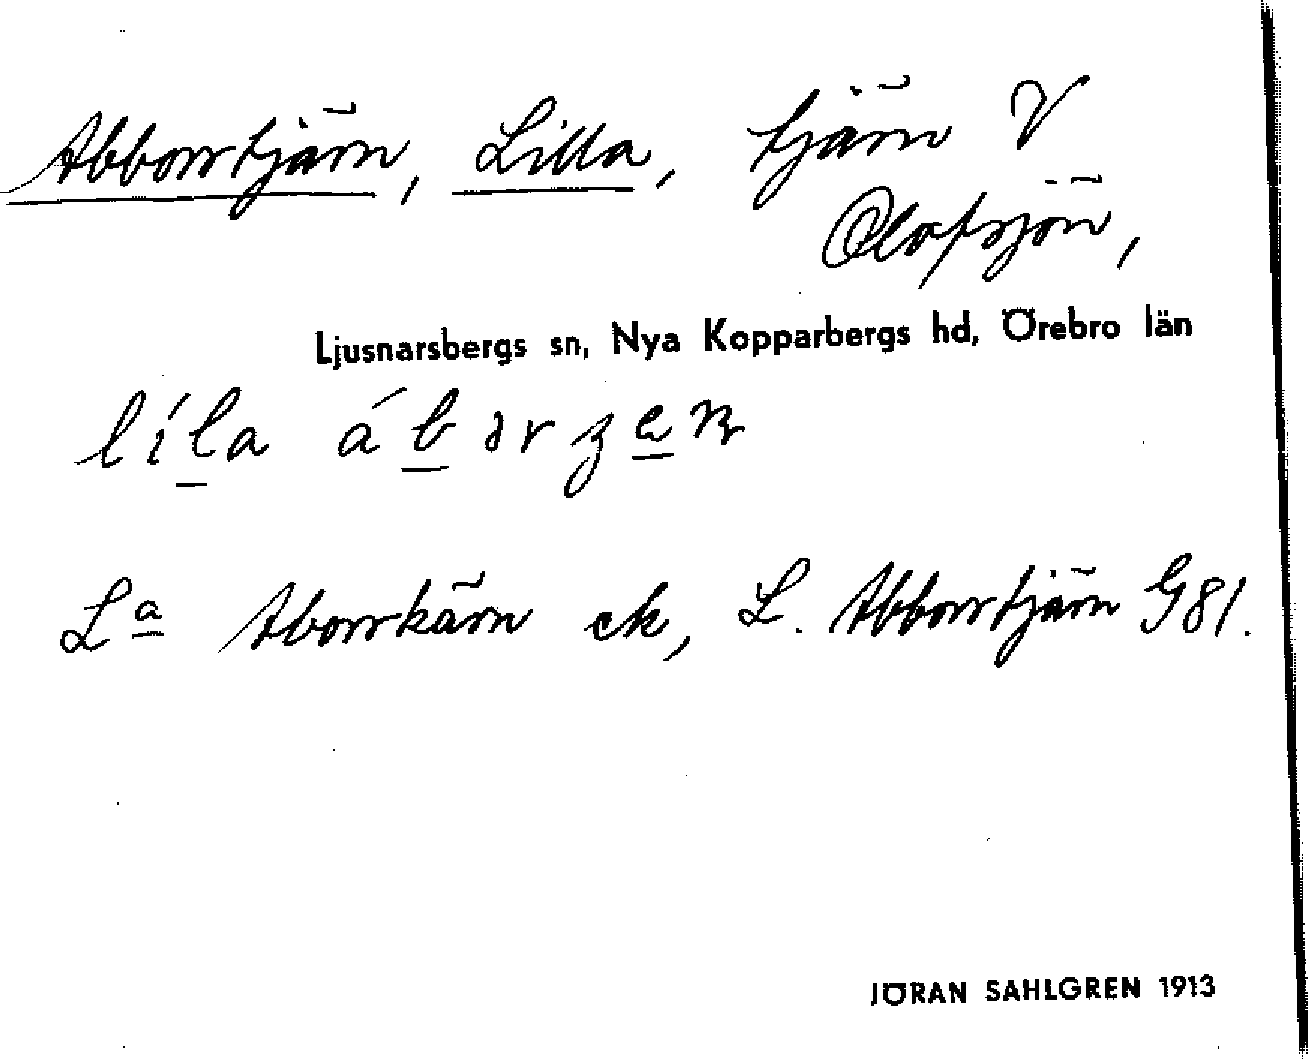 Abborrtjärn, Lilla, tjärn V
Olofsjön,
Ljusnarsbergs sn, Nya Kopparbergs hd, Örebro län
líla
Lª Aborrkärn ek, L. Abborrtjärn G81.
JÖRAN SAHLGREN 1913